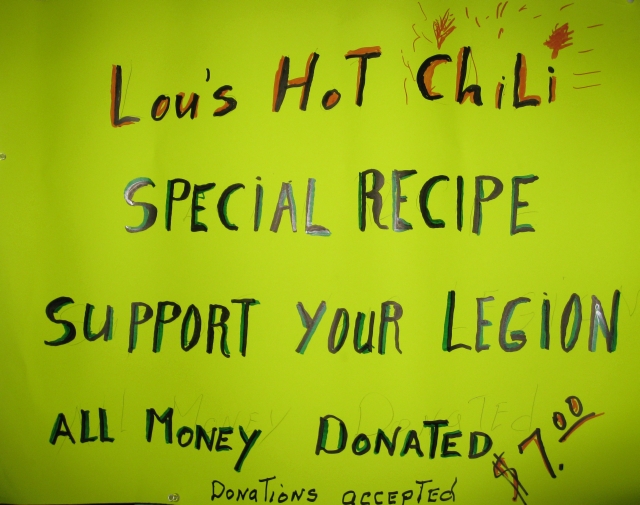 Lou's HoT ChiLi
SPECiAL RECIPE
SUPPORT YOUR LEGiON
ALL MONEY DONATED $7.00
DONATiONS ACCEPTED